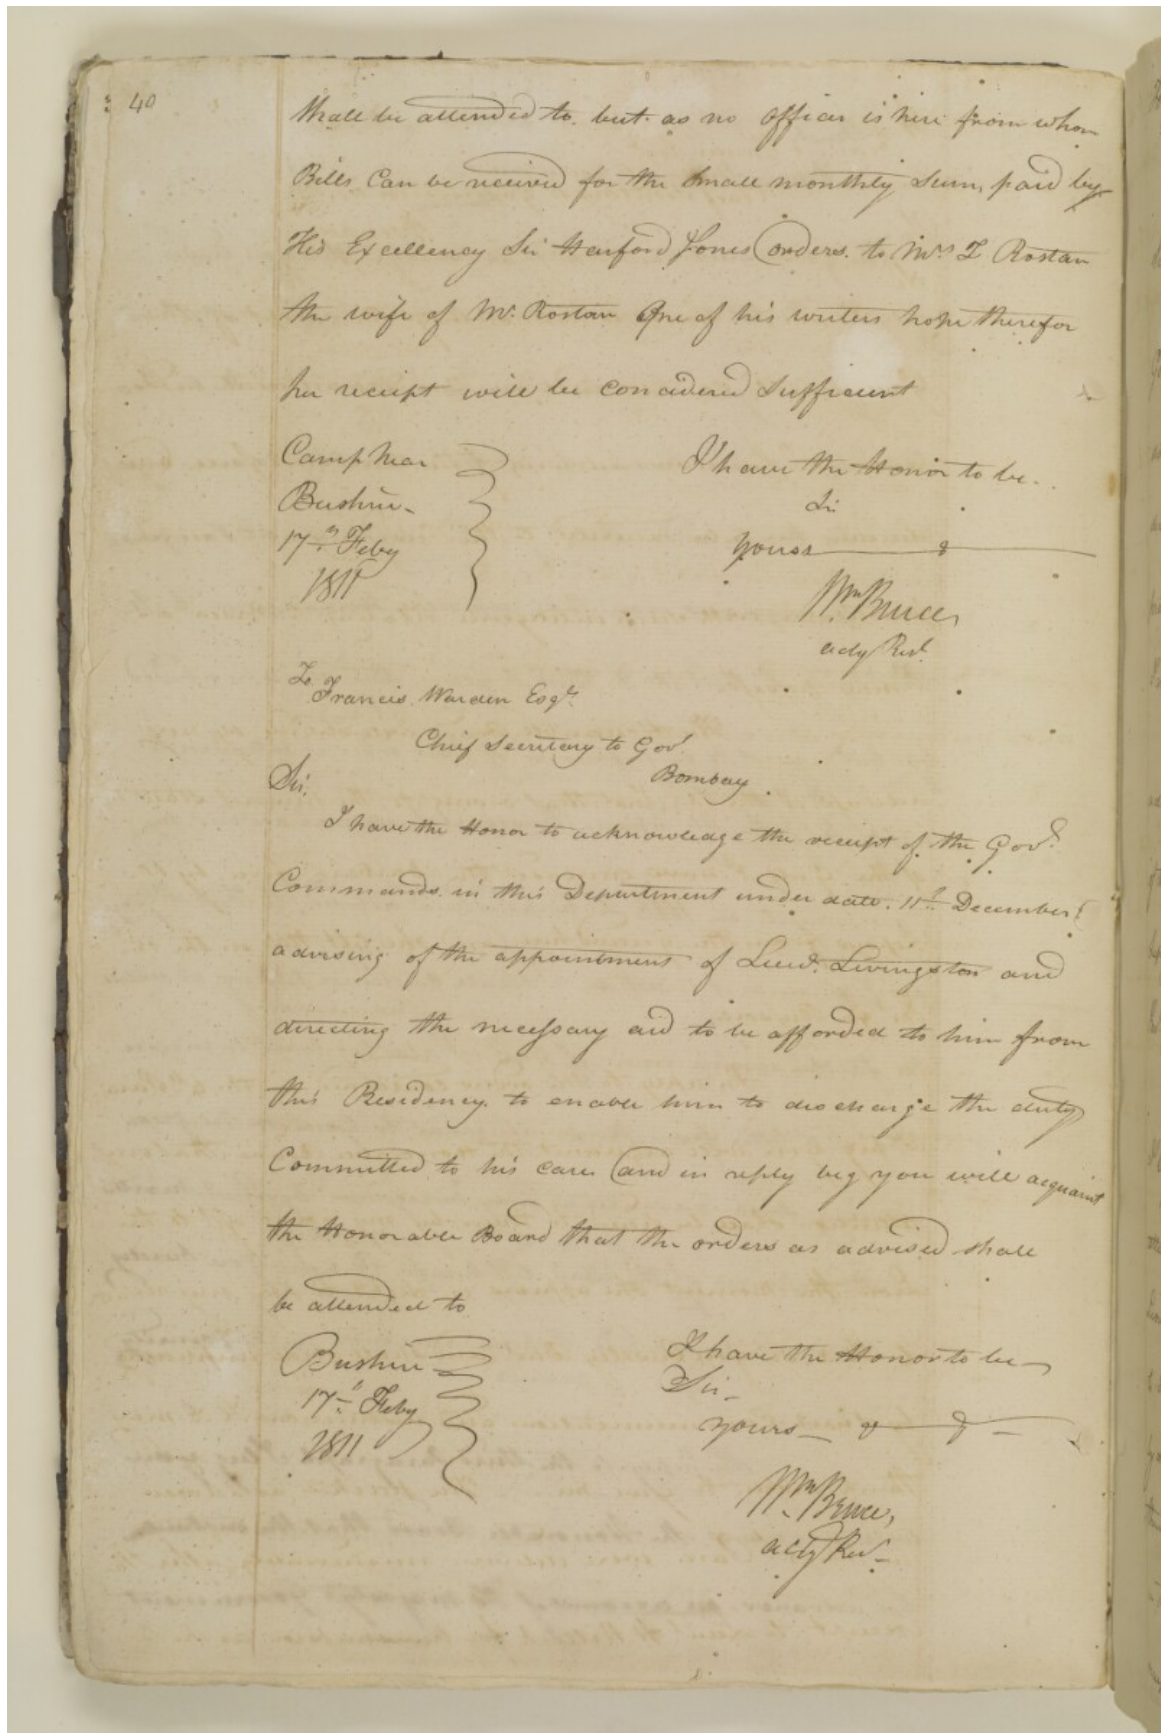 40
Shall be attended to. but as no officer is here from whom
Bills Can be received for the Small monthly Sum, paid by
His Excellency Sir Harford Jones orders. to Mrs Rostan
the wife of Mr. Rostan One of his writers hope therefor
her receipt will be considered Sufficient
Camp Near
Bushire
17th Feby
1811
I have the Honor to be..
Sir
yours &
Wm Bruce,
actg Rest.
To Francis Warden Esqr.
Chief Secretary to Govt
Bombay.
Sir,
I have the Honor to acknowledge the receipt of the Govt.
Commands in this Department under date. 11th December
advising of the appointment of Lieut. Livingston and
directing the necessary aid to be afforded to him from
this Residency to enable him to discharge the duty
Committed to his care and in reply beg you will acquaint
the Honorable Board that the orders as advised shall
be attended to
Bushire
17th Feby
1811
I have the Honor to be
Sir
yours & &
Wm Bruce,
actg Rest.